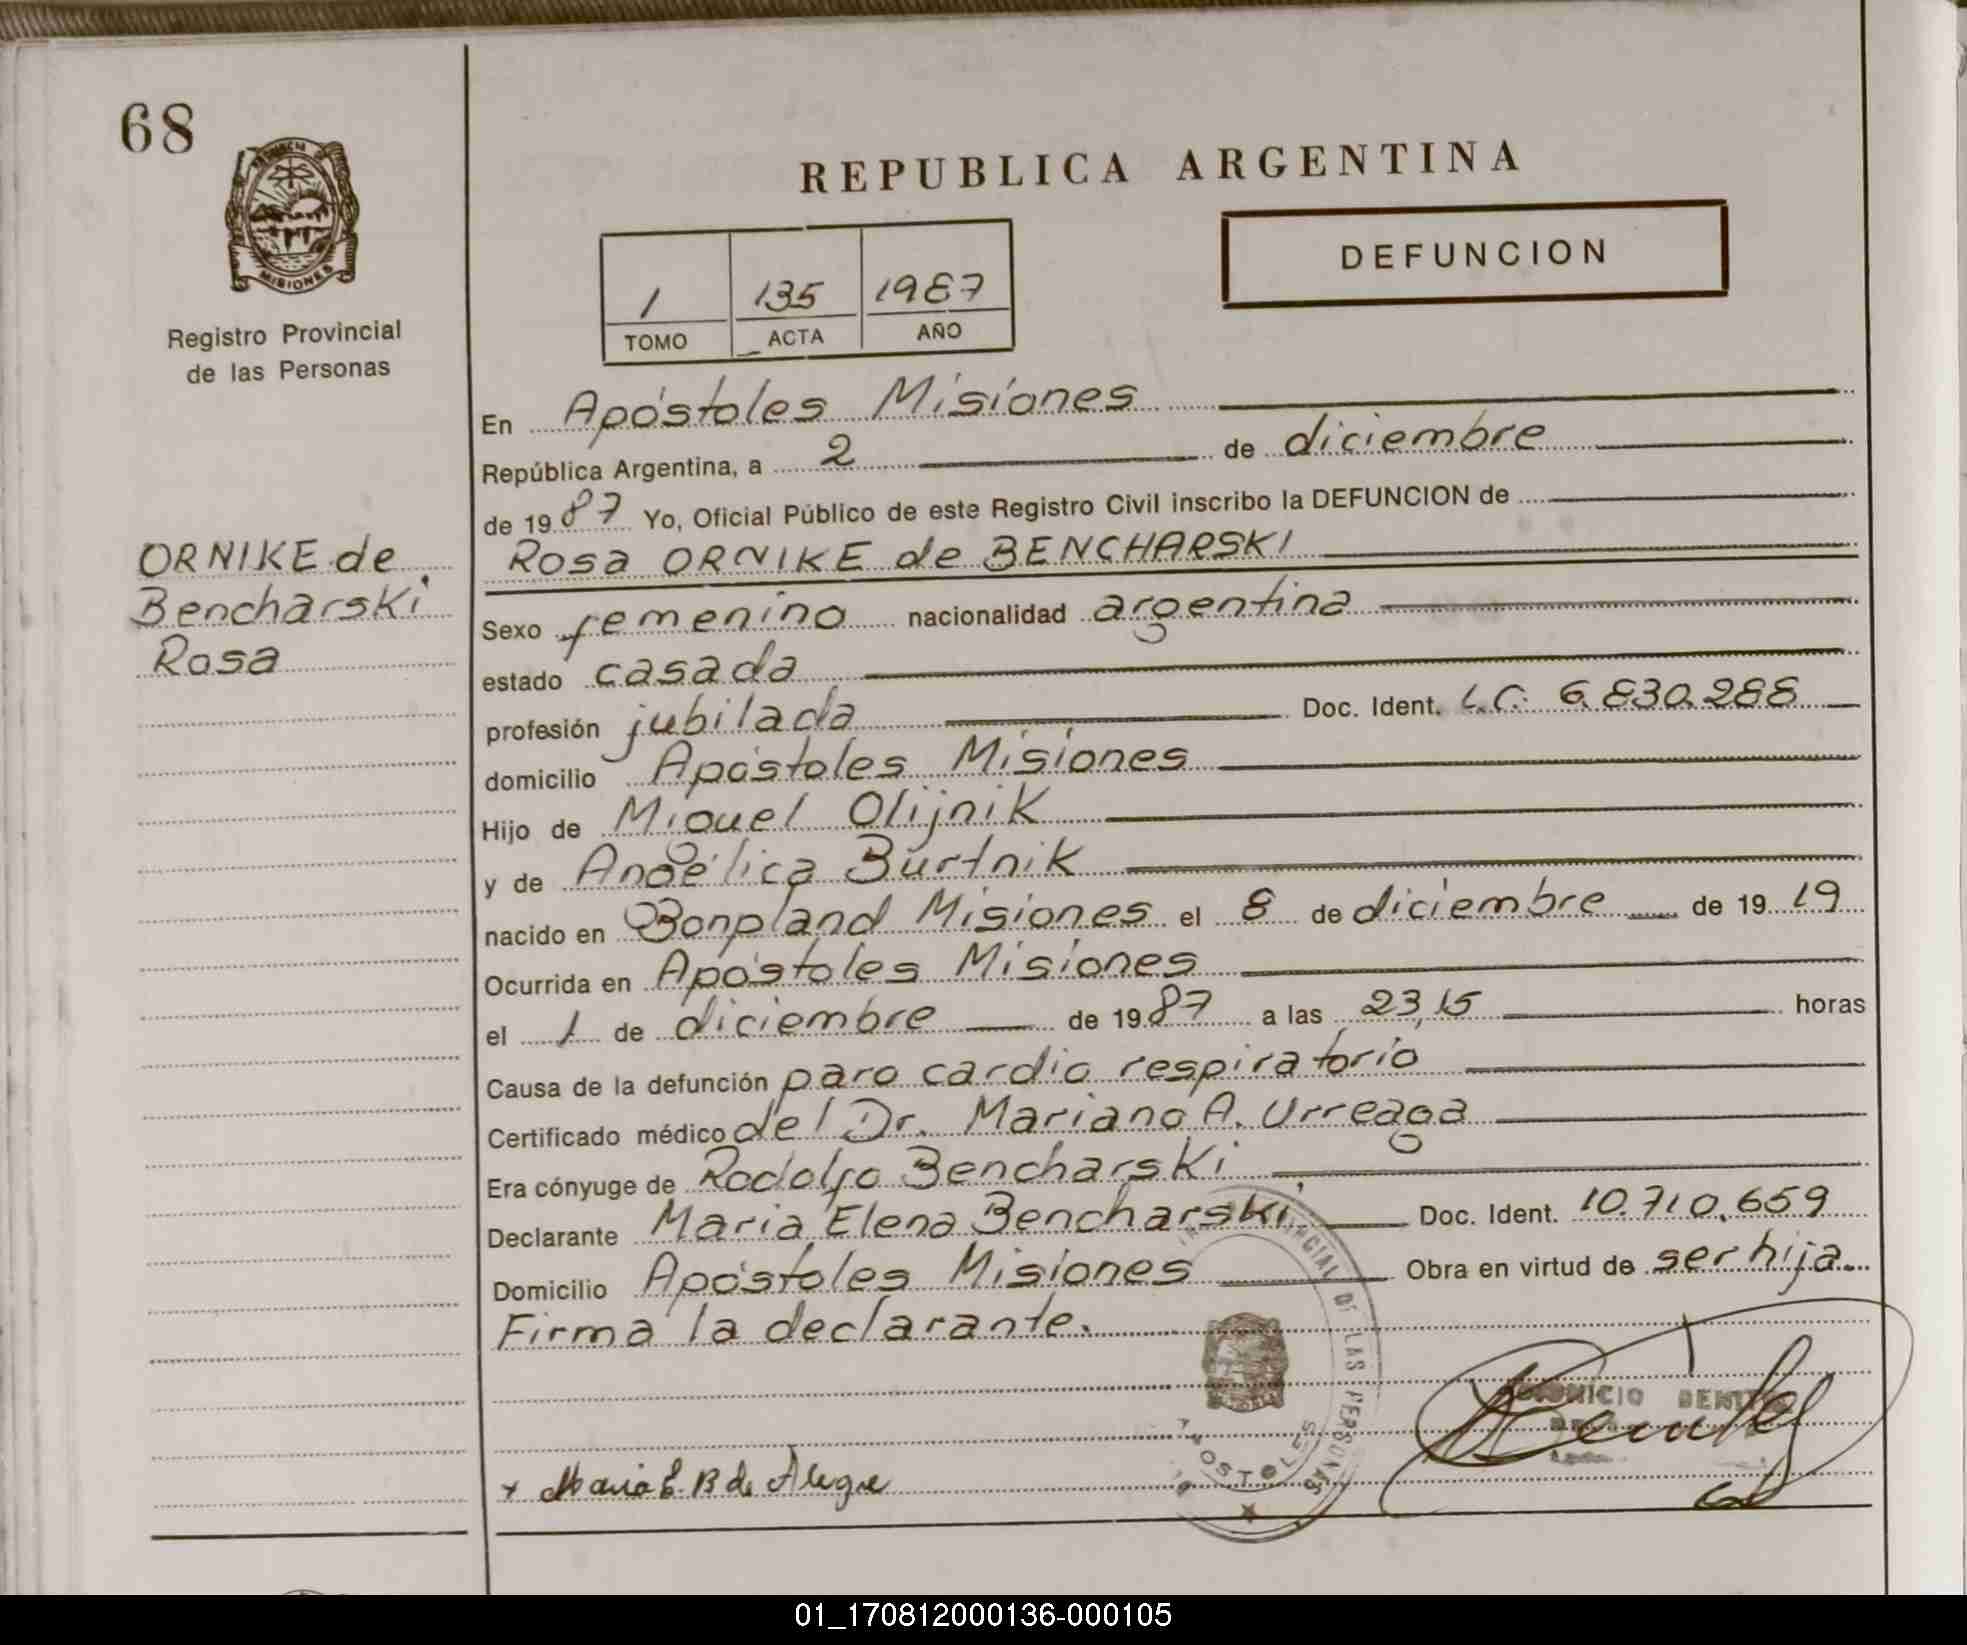 68
PROVINCIA DE
MISIONES
Registro Provincial
de las Personas
REPUBLICA ARGENTINA
DEFUNCION
1 135 1987
TOMO ACTA AÑO
En Apóstoles Misiones
República Argentina, a 2 de diciembre
de 1987 Yo, Oficial Público de este Registro Civil inscribo la DEFUNCION de
ORNIKE de
Bencharski
Rosa
Rosa ORNIKE de BENCHARSKI
Sexo femenino nacionalidad argentina
estado casada
profesión jubilada Doc. Ident. L.C. 6.830.288
domicilio Apóstoles Misiones
Hijo de Miguel Olijnik
y de Angélica Burtnik
nacido en Bonpland Misiones el 8 de diciembre de 1919
Ocurrida en Apóstoles Misiones
el 1 de diciembre de 1987 a las 23,15 horas
Causa de la defunción paro cardio respiratorio
Certificado médico del Dr. Mariano A. Urreaga
Era cónyuge de Rodolfo Bencharski
Declarante María Elena Bencharski Doc. Ident. 10.710.659
Domicilio Apóstoles Misiones Obra en virtud de ser hija.
Firma la declarante.
DE LAS PERSONAS
APOSTOLES
x Maria E. B de Alegre
01_170812000136-000105